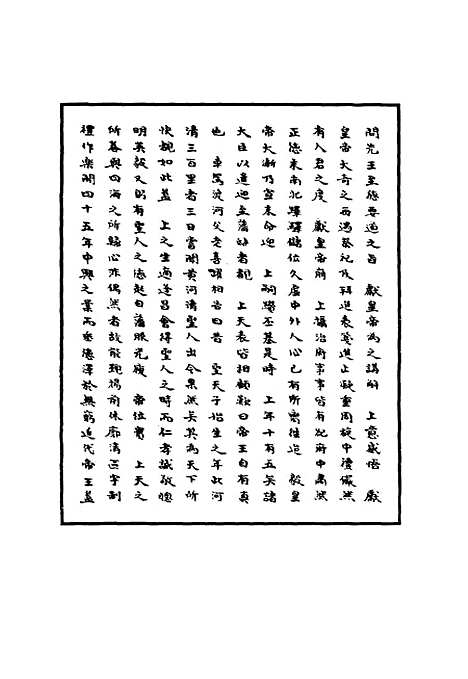 問先王至德要道之旨　獻皇帝為之講解　上意感悟　獻
皇帝大奇之而遇祭祀及拜進表箋進止凝重周旋中禮儼然
有人君之度　獻皇帝崩　上攝治府事事皆有紀府中肅然
正德末南北蹕驛儲位久虛中外人心已有所嚮往迨　毅皇
帝大漸乃宣末命迎　上嗣躋丕基是時　上年十有五矣諸
大臣以進迎至藩邸者覩　上天表皆相顧歎曰帝王自有真
也　車駕渡河父老喜躍相告曰昔　聖天子始生之年此河
清三百里者三日當聞黃河清聖人出今果然矣其為天下所
快覩如此蓋　上之生適逢昌會得聖人之時而仁孝誠敬聰
明英毅又躬有聖人之德起自藩服光嶽　帝位實　上天之
所眷與四海之所歸心亦偶然者故能現揚前休廓清區宇制
禮作樂開四十五年中興之業而垂德澤於無窮近代帝王蓋